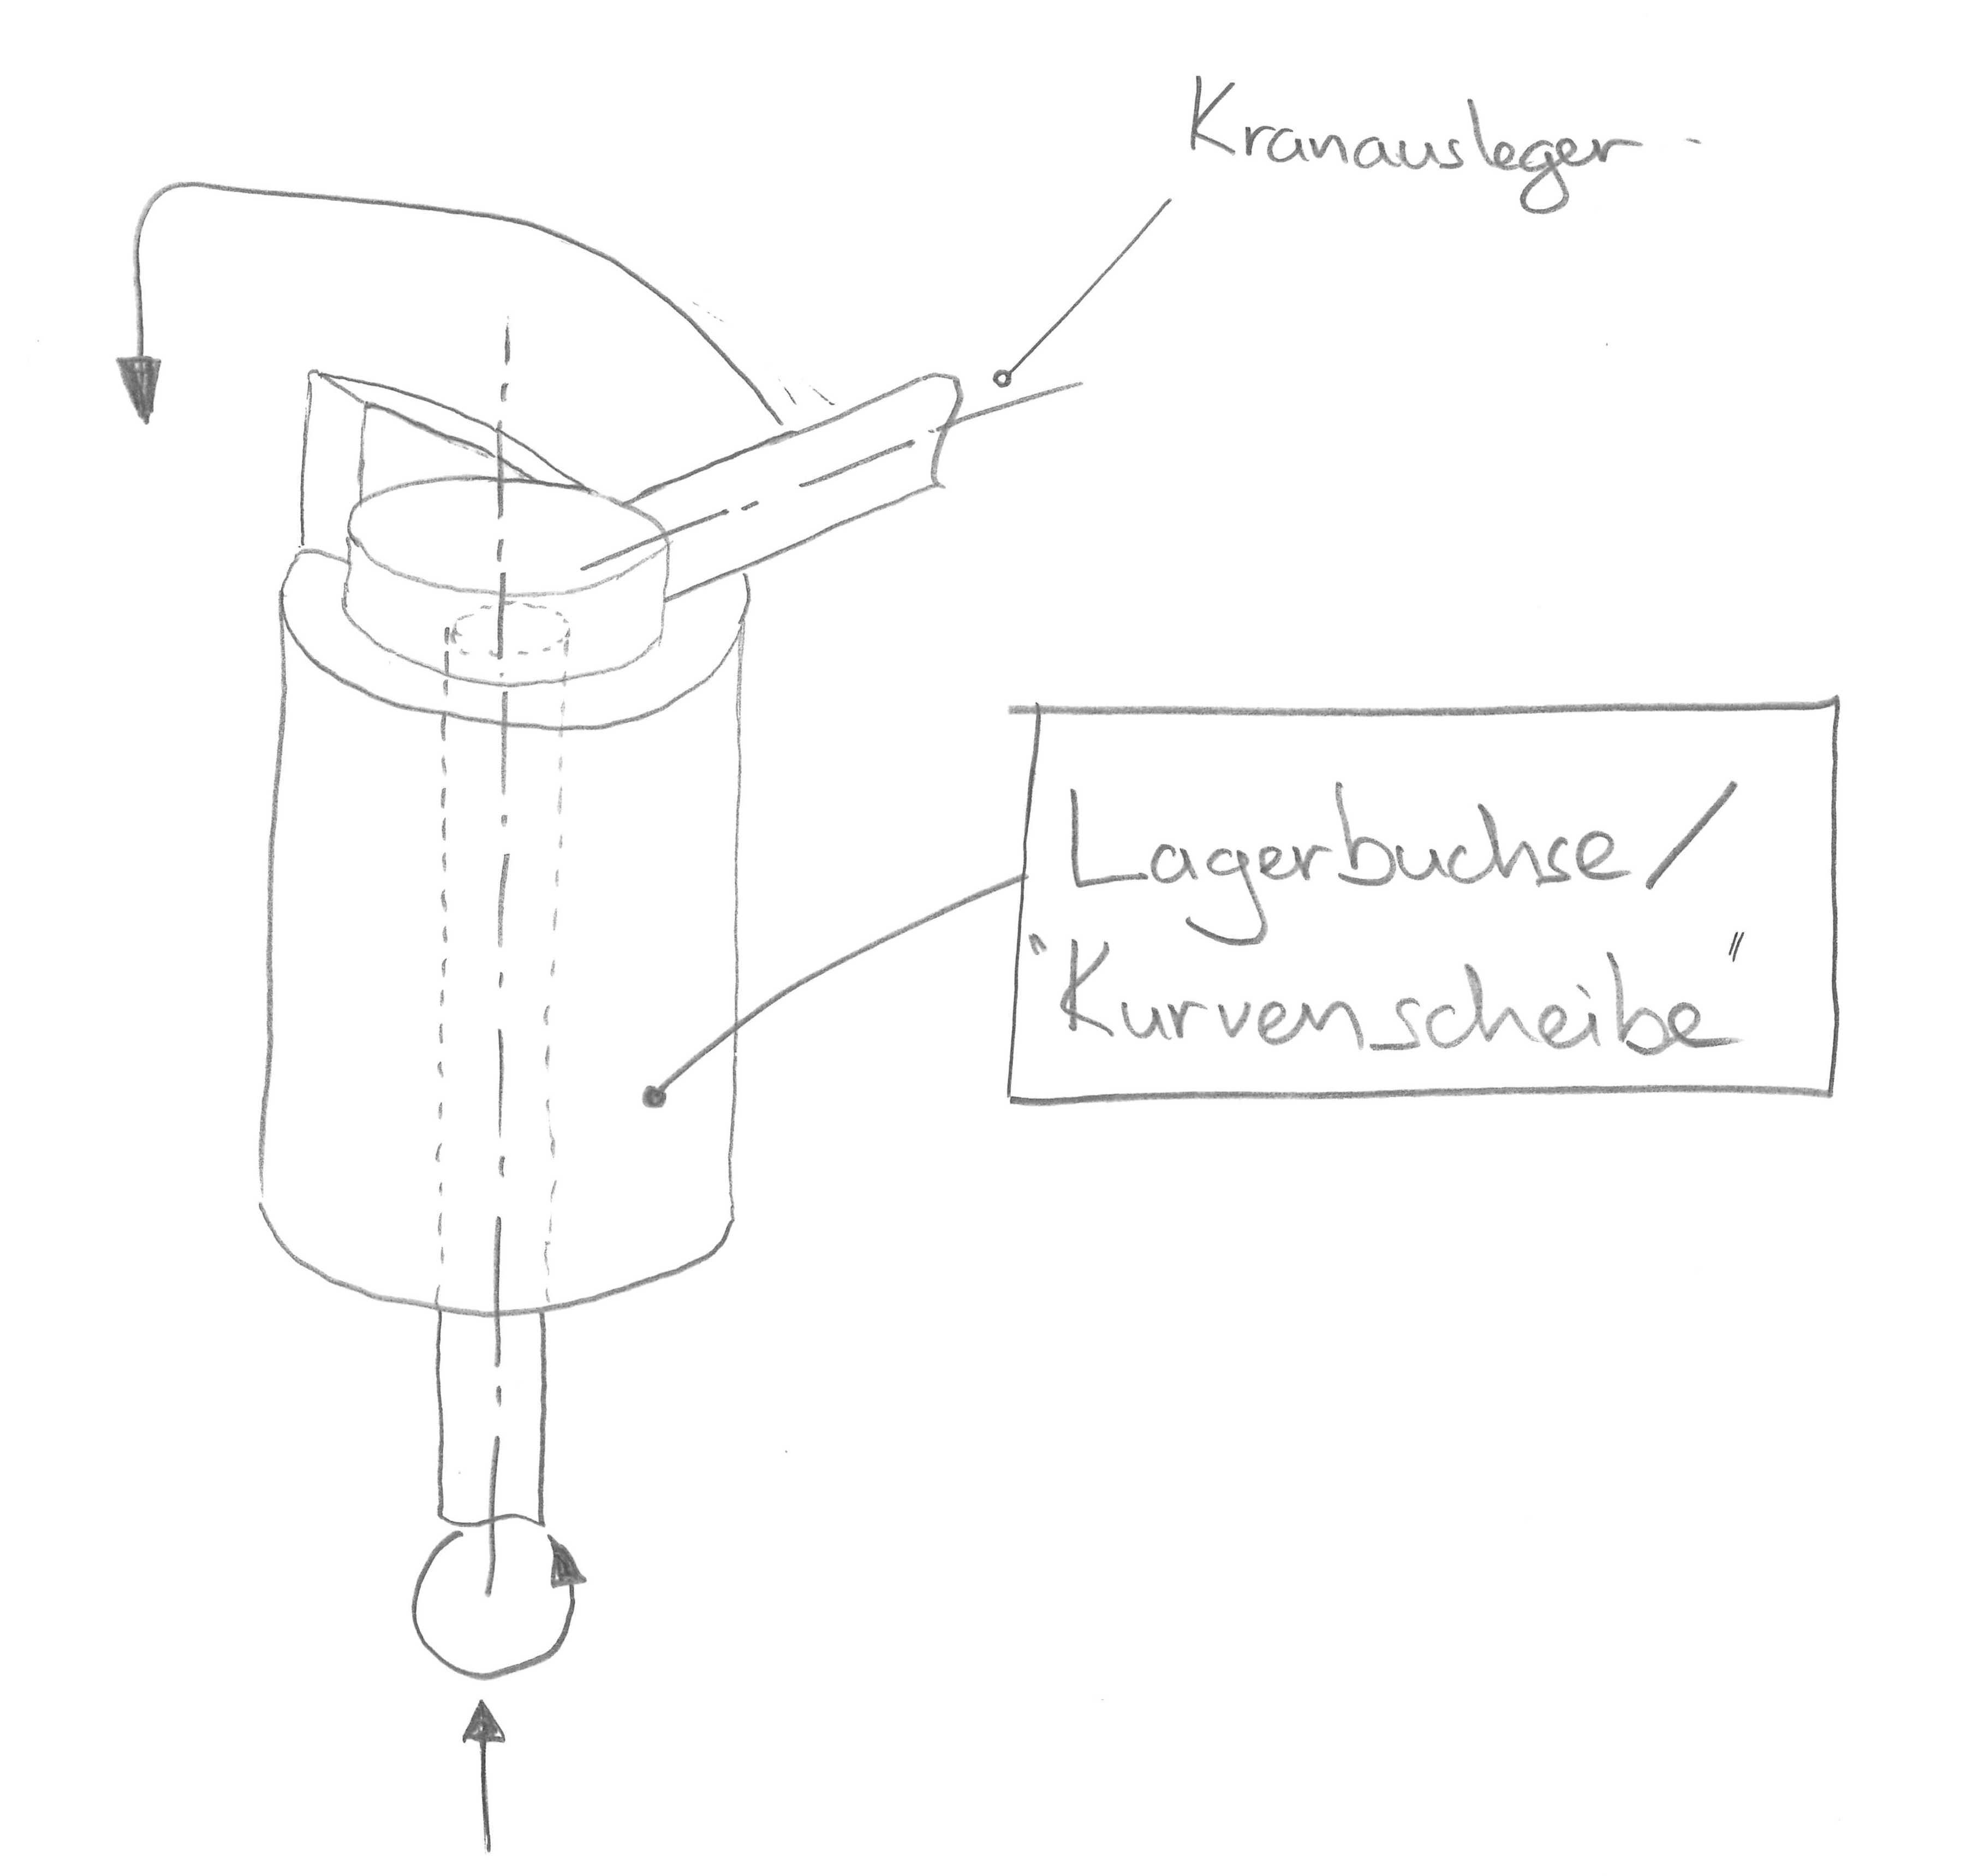 Kranausleger
Lagerbuchse/
"Kurvenscheibe"